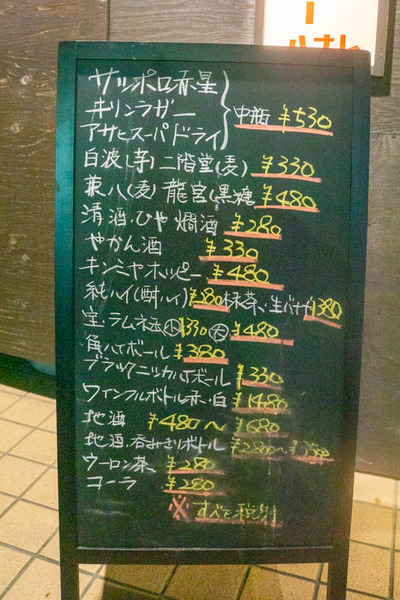 サッポロ赤星
キリンラガー 中瓶 ¥530
アサヒスーパードライ
白波(芋) 二階堂(麦) ¥330
兼八(麦) 龍宮(黒糖 ¥480
清酒・ひや 燗酒 ¥280
やかん酒 ¥330
キンミヤホッピー ¥480
純ハイ(酎ハイ) ¥280 抹茶・生バナナ ¥380
宝・ラムネ 小 ¥330 大 ¥480
角ハイボール ¥380
ブラックニッカハイボール ¥330
ワインフルボトル赤・白 ¥1480
地酒 ¥480〜 ¥680
地酒・呑みきりボトル
ウーロン茶 ¥280
コーラ ¥280
※すべて税別